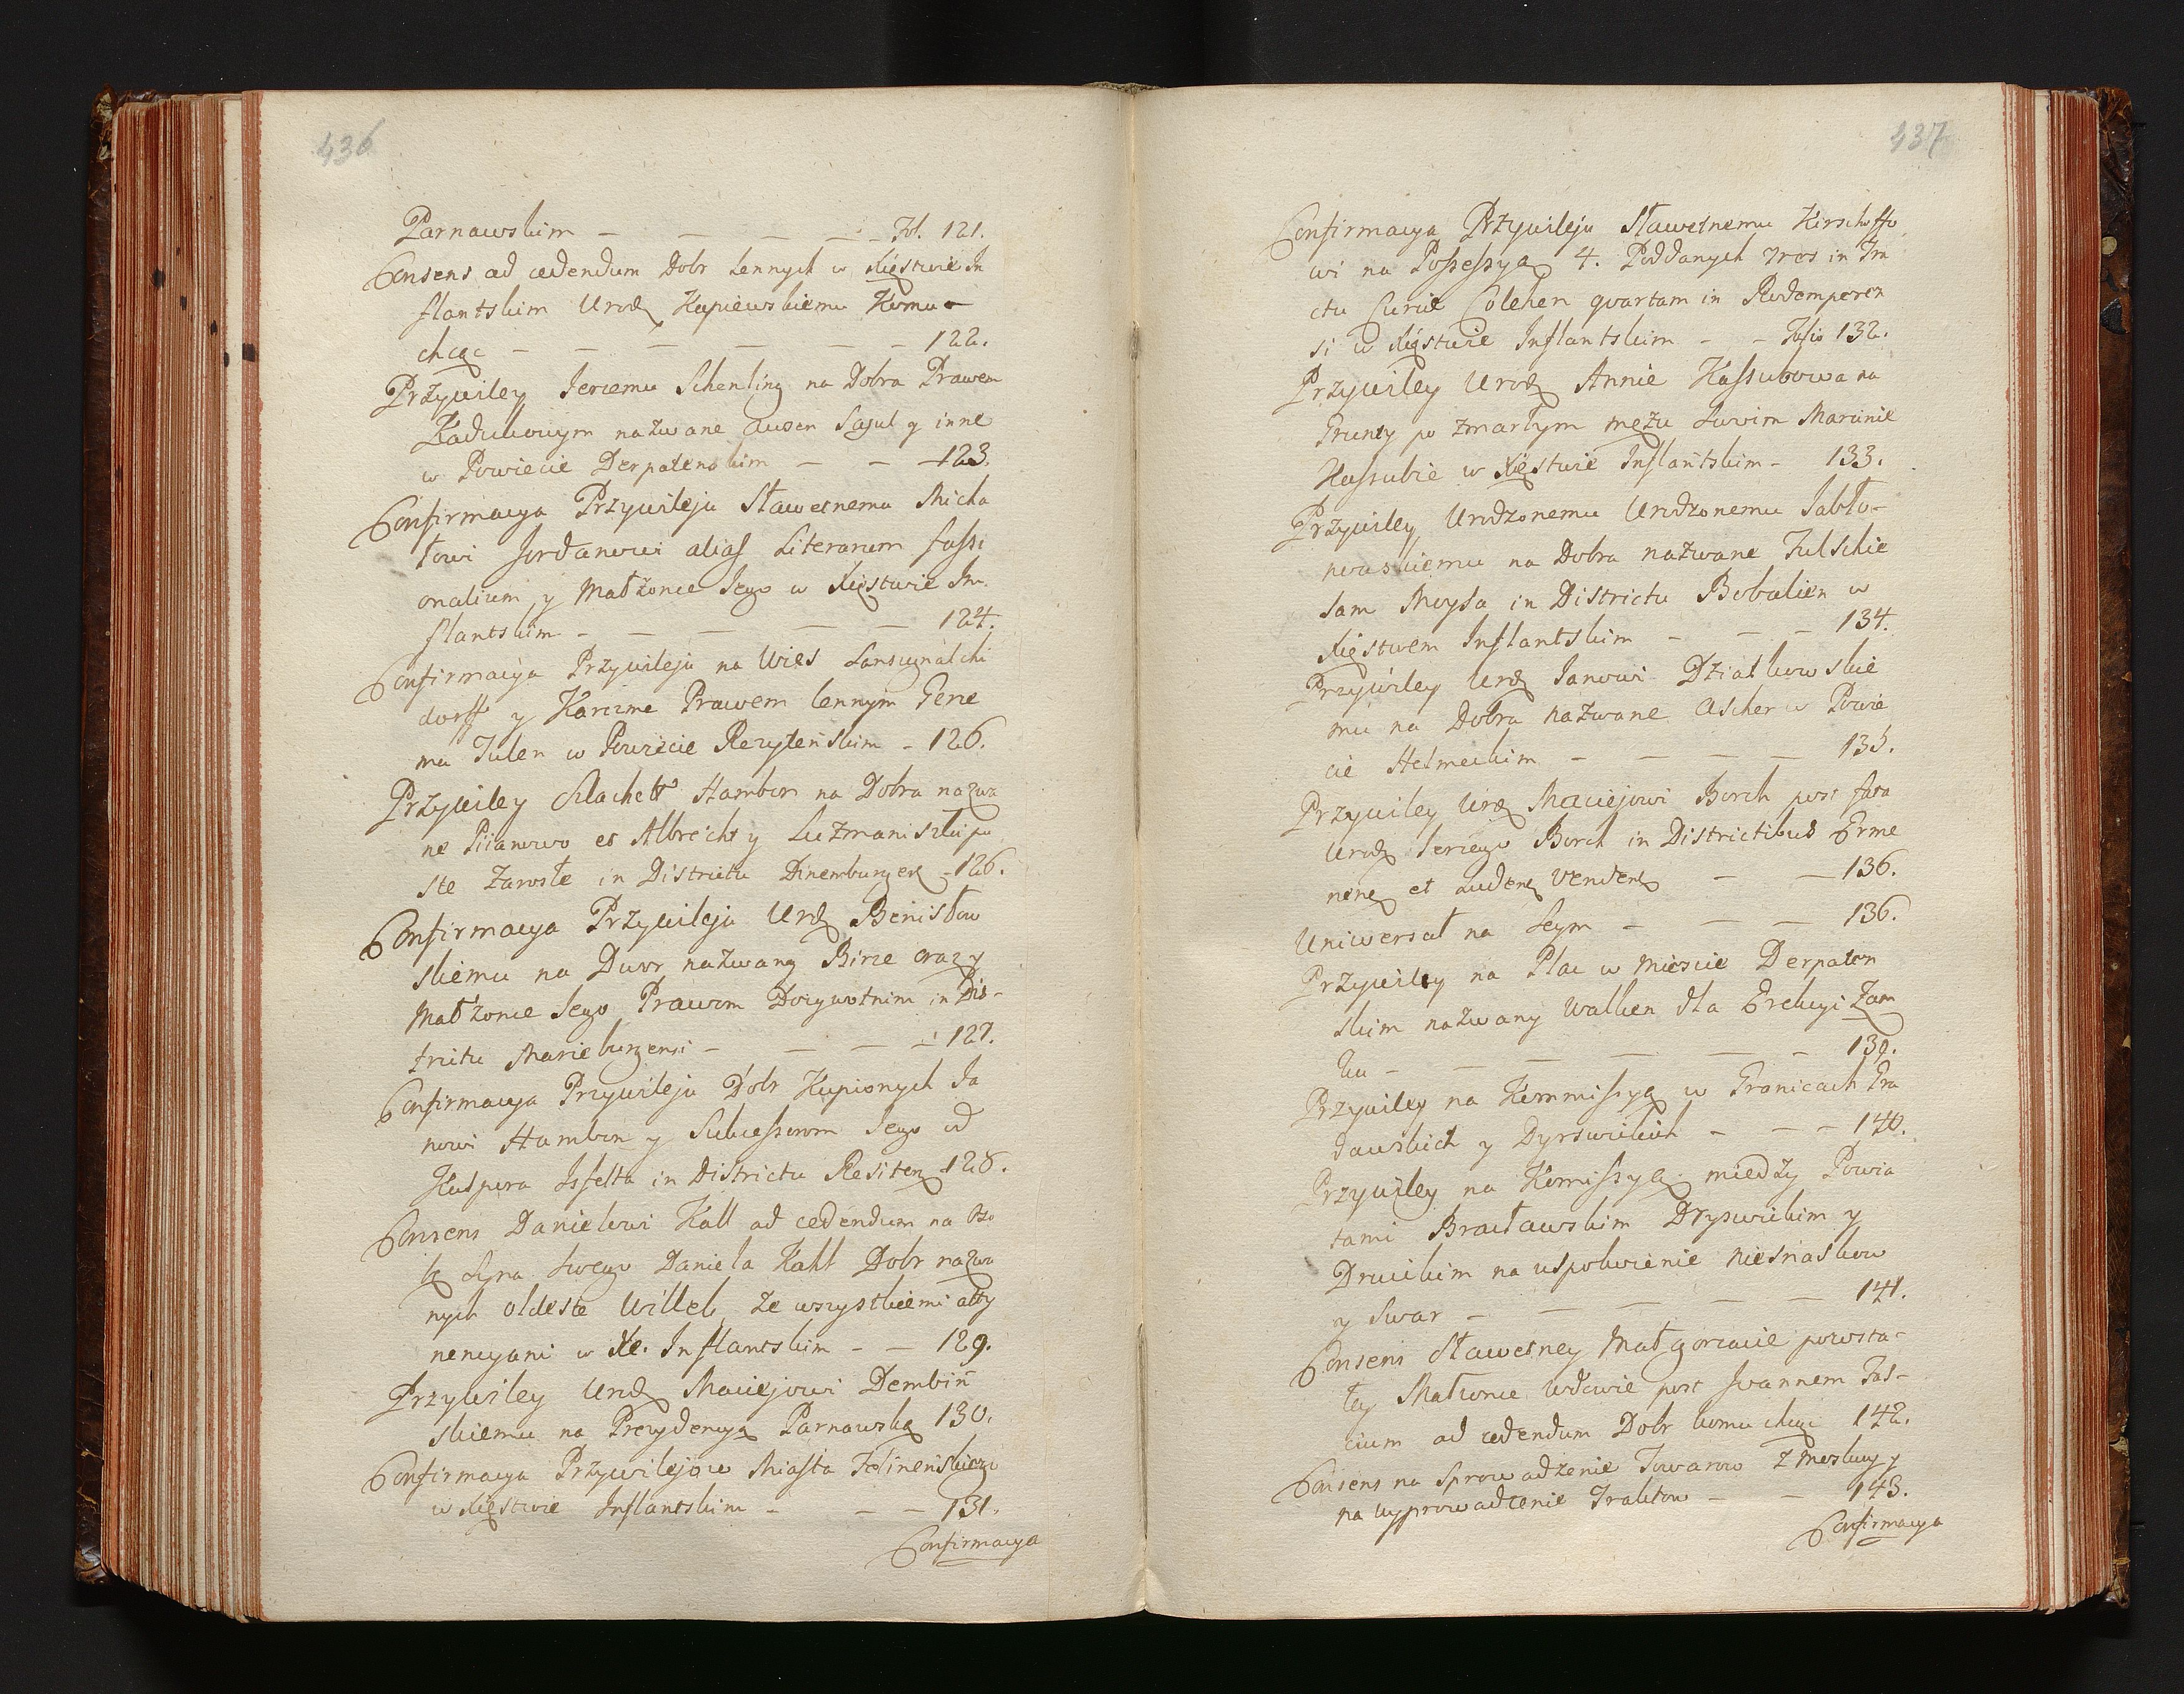 436
Parnawskim — — — — Fol. 121.
Consens ad cedendum Dobr Lennych w Xięstwie In
flantskim Urodz Kupiewskiemu Komu
chcąc — — — — — 122.
Przywiley Jerzemu Schenling na Dobra Prawem
Kadukowym nazwane Ausen Sagul y inne
w Powiecie Derpatenskim — — 123.
Confirmacya Przywileju Sławetnemu Micha
łowi Jordanowi alias Literarum fassi
onalium y Małżonce Jego w Xięstwie In
flantskim — — — — 124.
Confirmacya Przywileju na Wies
dorff y Karczme Prawem lennym Gene
mu Tulen w Powiecie Rezyteńskim — 126.
Przywiley Szlachett Hambor na Dobra nazwa
ne Piianowo et Albreicht y Luzmaniszki pu
ste Zarosłe in Districtu Dinemburgen — 126.
Confirmacya Przywileju Urodz Benisław
skiemu na Dwor nazwany Birze oraz y
Małżonce Jego Prawem Dozywotnim in Dis-
trictu Marieburgensi — — — 127.
Confirmacya Przywileju Dobr Kupionych Ja
nowi Hambor y Sukcessorom Jego od
Kaspera Isfelta in Districtu Resiten 128.
Consens Danielowi Kall ad cedendum na Oso
bę Syna Swego Daniela Kall Dobr nazwa
nych oldeste Willel ze wszystkiemi atty
nencyami w Xe. Inflantskim — — 129.
Przywiley Urodz Maciejowi Dembiń
skiemu na Prezydencyą Parnawską 130.
Confirmacya Przywilejow Miasta Felinenskiego
w Xięstwie Inflantskim — — — 131.
Confirmacya
437
Confirmacya Przywileju Sławetnemu Kirschoffo
wi na Possessyą 4. Poddanych tres in Tra
ctu Curiæ Colehen quartam in Rudemperen
si w Xięstwie Inflantskim — — Folio 132.
Przywiley Urodz Annie Kassubowa na
Grunty po zmarłym mężu Swoim Marcinie
Kassubie w Xięstwie Inflantskim — 133.
Przywiley Urodzonemu Urodzonemu Jabło-
nowskiemu na Dobra nazwane Tulschie
sam Moysa in Districtu Bobalien w
Xięstwem Inflantskim — — — 134.
Przywiley Urodz Janowi Działkowskie
mu na Dobra nazwane Ascher w Powie
cie Helmeckim — — — — 135.
Przywiley Urodz Maciejowi Borch post fata
Urodz Jerzego Borch in Districtibus Erme
nen et Venden — — 136.
Uniwersał na Seym — — — 136.
Przywiley na Plac w Miescie Derpaten
skim nazwany Walken dla Erekcyi Zam
ku — — — — — 139.
Przywiley na Kommissyą w Granicach Bra
sławskich y Dyrswickich — — — 140.
Przywiley na Komissyą między Powia
tami Bracławskim Dryswickim y
Druickim na uspokoienie niesnaskow
y Swar — — — — — 141.
Consens Sławetney Małgorzacie pozosta-
łey Małżonce Wdowie post Joannem Fas-
cium ad cedendum Dobr komu chcąc 142.
Consens na Sprowadzenie Towarow z Moskwy y
na wyprowadzenie Traktow — — 143.
Confirmacya